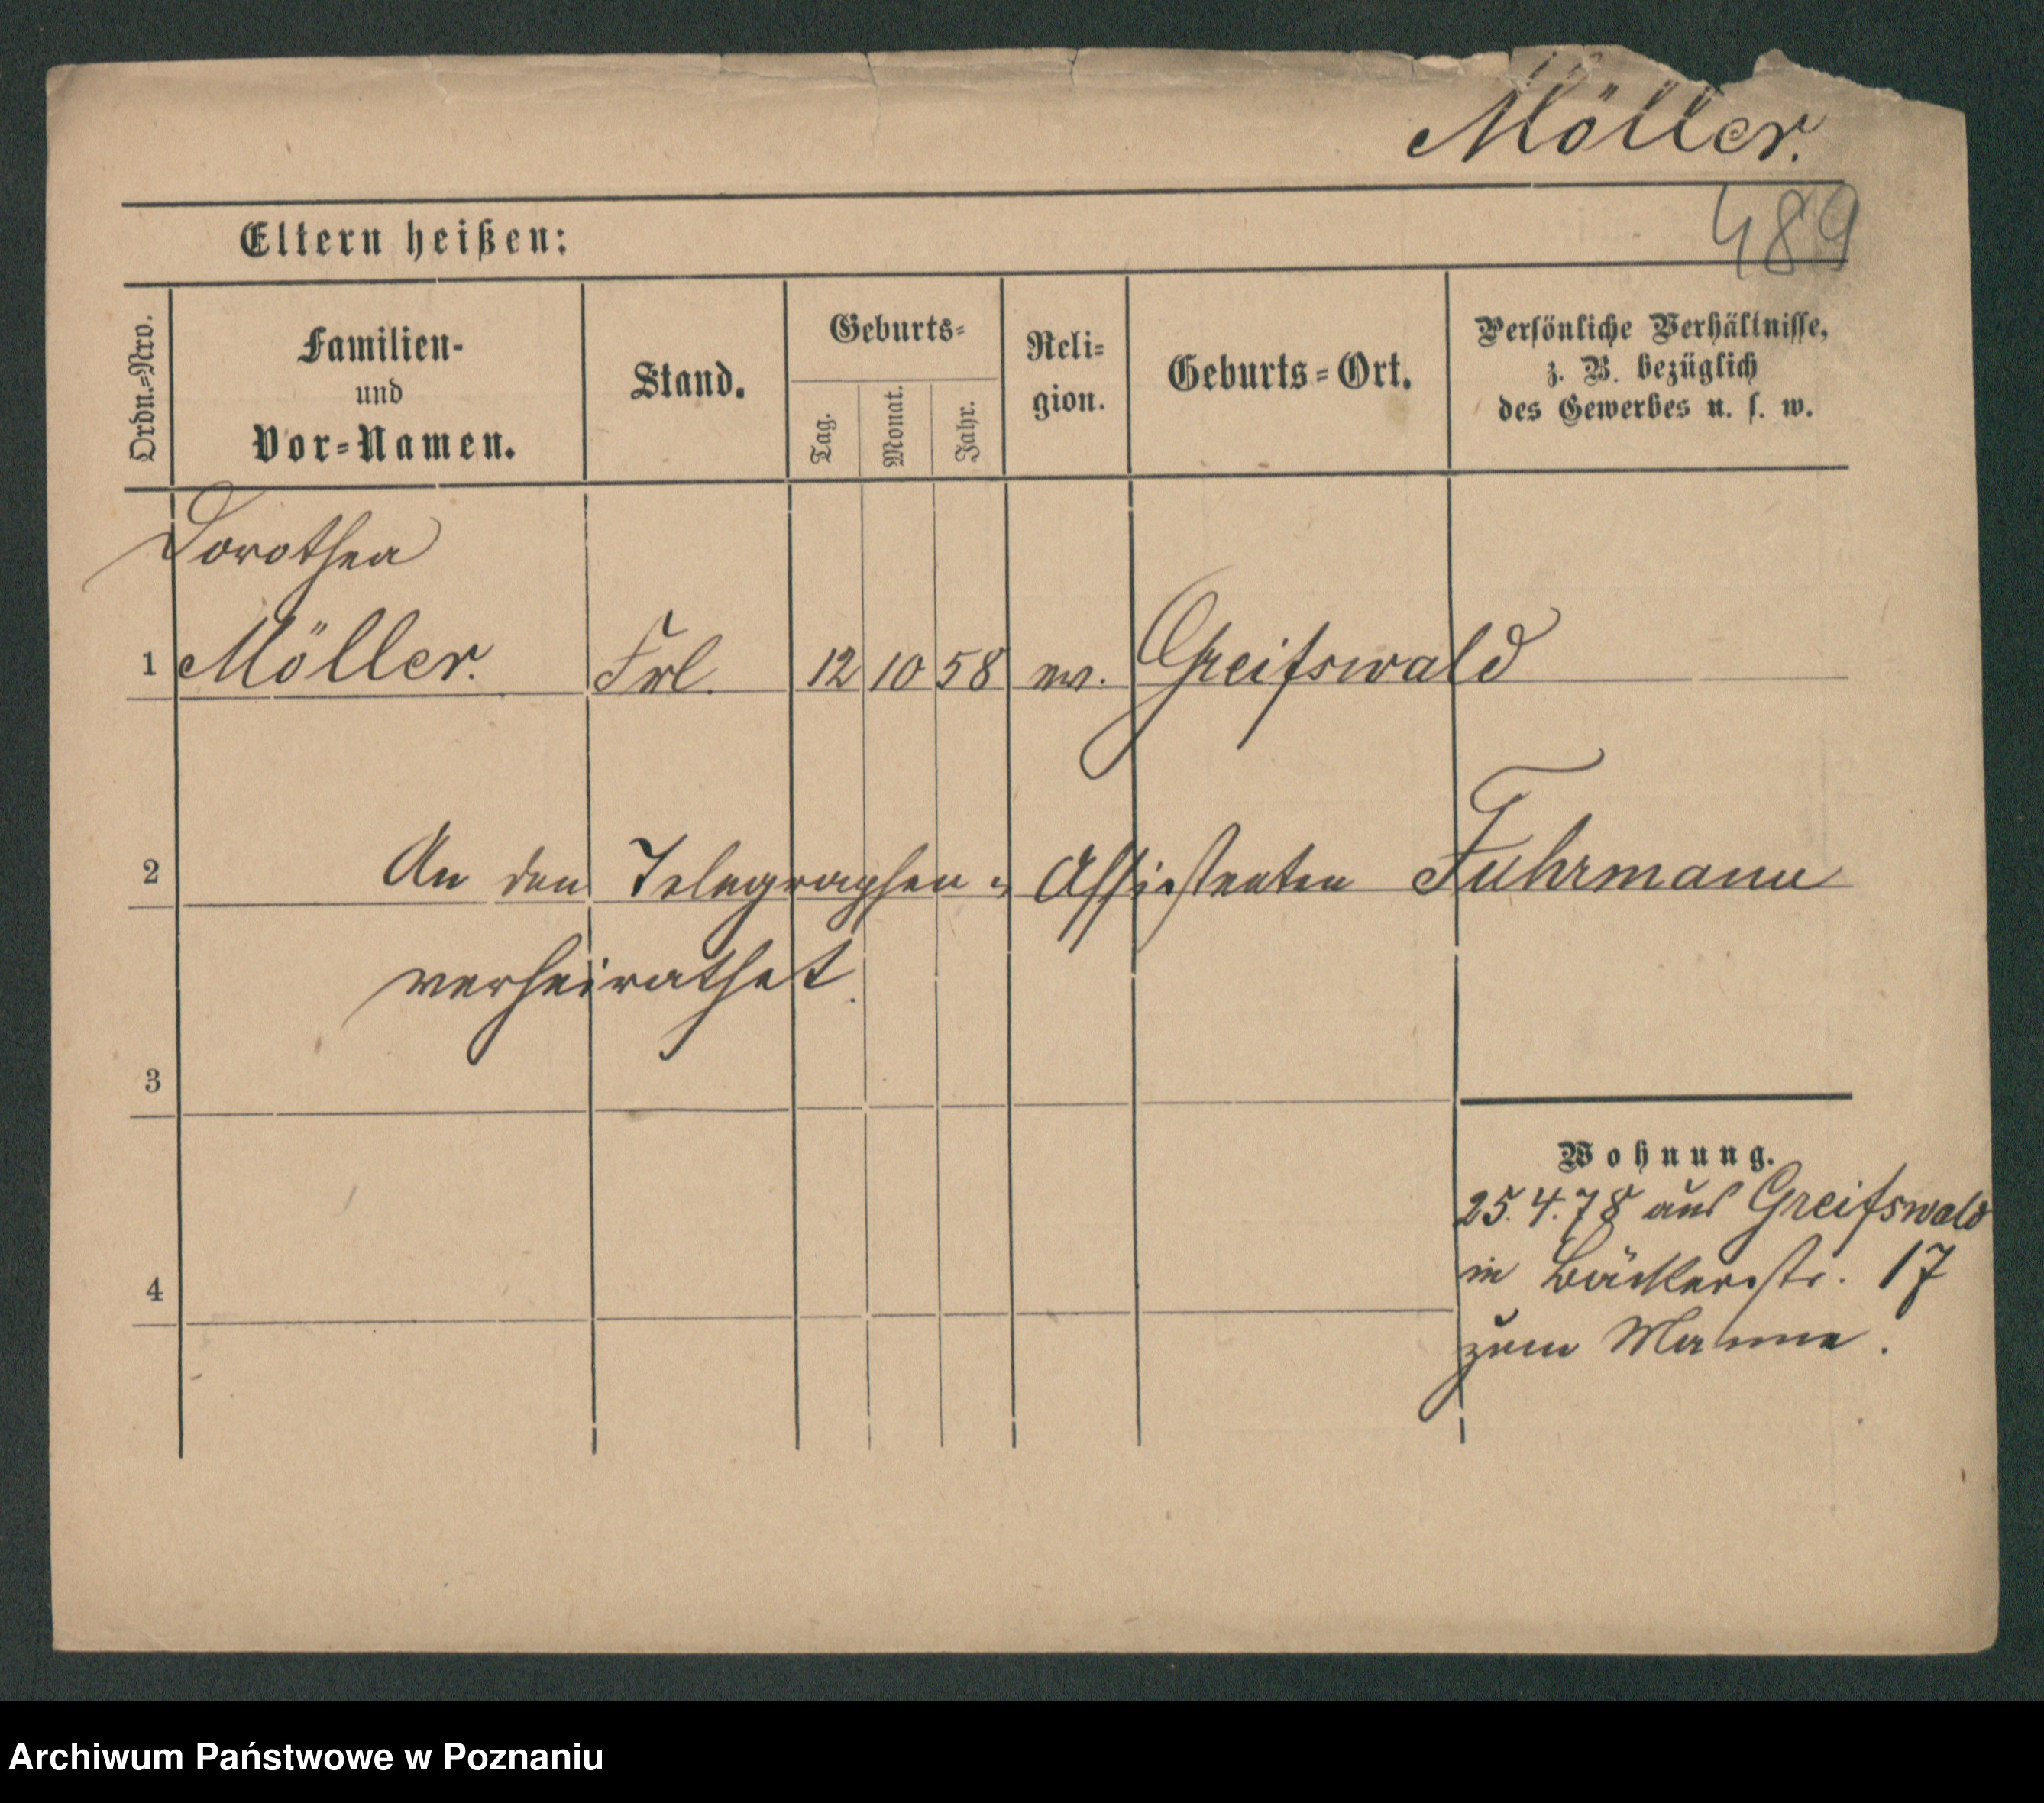 Möller.
489
Eltern heißen:
Ordn.=Nro.
Familien-
und
Vor=Namen.
Stand.
Geburts=
Tag.
Monat.
Jahr.
Reli=
gion.
Geburts=Ort.
Persönliche Verhältnisse,
z. B. bezüglich
des Gewerbes u. s. w.
Dorothea
1 Möller. Frl. 12 10 58 ev. Greifswald
2 An den Telegraphen= Assistenten Fuhrmann
verheirathet.
3
Wohnung.
25.4.78 aus Greifswald
in Bäckerstr. 17
4
zum Manne.
Archiwum Państwowe w Poznaniu